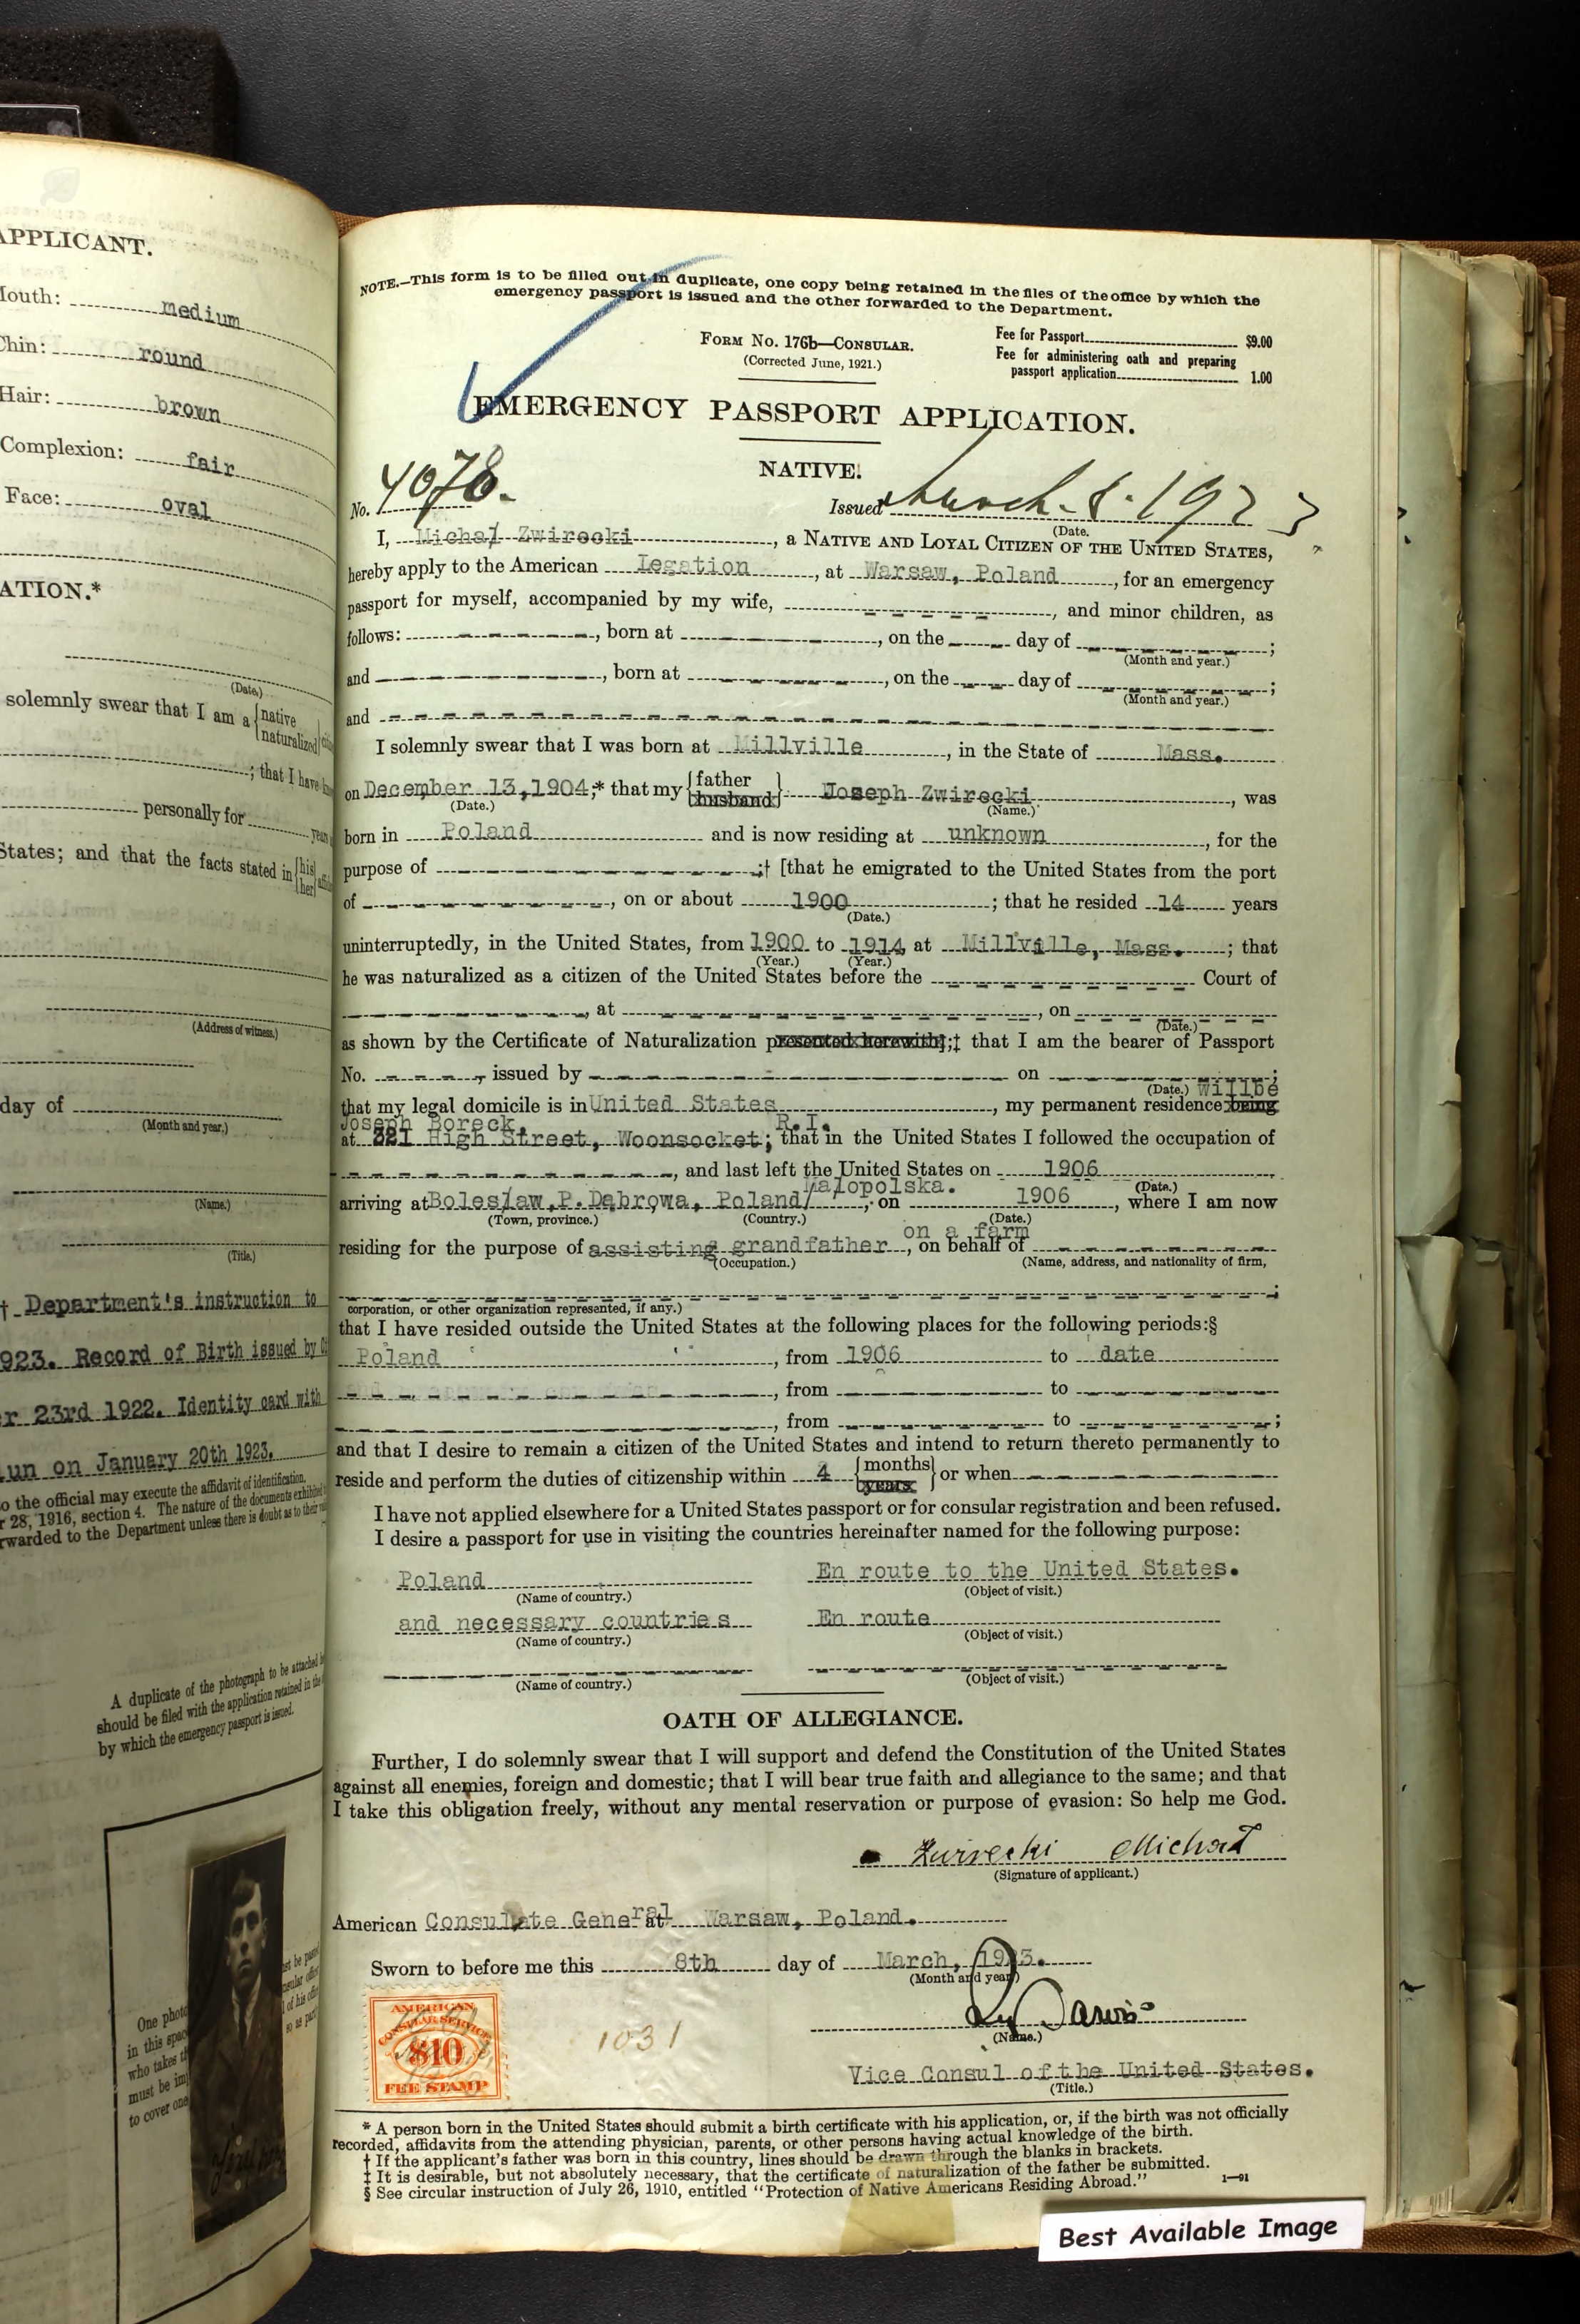 APPLICANT.
Mouth: medium
Chin: round
Hair: brown
Complexion: fair
Face: oval
ATION.*
(Date.)
solemnly swear that I am a {native
naturalized}
; that I have
personally for years
States; and that the facts stated in {his
her}
(Address of witness.)
day of
(Month and year.)
(Name.)
(Title.)
† Department's instruction to
923. Record of Birth issued by
r 23rd 1922. Identity card with
un on January 20th 1923.
to the official may execute the affidavit of identification.
28, 1916, section 4. The nature of the documents exhibited
rwarded to the Department unless there is doubt as to their
A duplicate of the photograph to be attached
should be filed with the application retained in the
by which the emergency passport is issued.
One photo
in this space
who takes
must be im
to cover one
NOTE.—This form is to be filled out in duplicate, one copy being retained in the files of the office by which the
emergency passport is issued and the other forwarded to the Department.
FORM No. 176b—CONSULAR.
(Corrected June, 1921.)
Fee for Passport $9.00
Fee for administering oath and preparing
passport application 1.00
EMERGENCY PASSPORT APPLICATION.
NATIVE.
No. 4078. Issued March. 8. 1923
(Date.
I, Michał Zwirecki, a NATIVE AND LOYAL CITIZEN OF THE UNITED STATES,
hereby apply to the American Legation, at Warsaw, Poland, for an emergency
passport for myself, accompanied by my wife, , and minor children, as
follows: , born at , on the day of ;
(Month and year.)
and , born at , on the day of ;
(Month and year.)
and
I solemnly swear that I was born at Millville, in the State of Mass.
on December 13, 1904;* that my {father
husband} Joseph Zwirecki, was
(Date.) (Name.)
born in Poland and is now residing at unknown, for the
purpose of ;† [that he emigrated to the United States from the port
of , on or about 1900; that he resided 14 years
(Date.)
uninterruptedly, in the United States, from 1900 to 1914 at Millville, Mass.; that
(Year.) (Year.)
he was naturalized as a citizen of the United States before the Court of
, at , on
(Date.)
as shown by the Certificate of Naturalization presented herewith];‡ that I am the bearer of Passport
No. , issued by on ;
(Date.) will be
that my legal domicile is in United States, my permanent residence being
Joseph Boreck, R.I.
at 321 High Street, Woonsocket; that in the United States I followed the occupation of
, and last left the United States on 1906
Małopolska. (Date.)
arriving at Bolesław, P. Dąbrowa, Poland/, on 1906, where I am now
(Town, province.) (Country.) (Date.)
on a farm
residing for the purpose of assisting grandfather, on behalf of
(Occupation.) (Name, address, and nationality of firm,
;
corporation, or other organization represented, if any.)
that I have resided outside the United States at the following places for the following periods:§
Poland, from 1906 to date
, from to
, from to ;
and that I desire to remain a citizen of the United States and intend to return thereto permanently to
reside and perform the duties of citizenship within 4 {months
years} or when
I have not applied elsewhere for a United States passport or for consular registration and been refused.
I desire a passport for use in visiting the countries hereinafter named for the following purpose:
Poland En route to the United States.
(Name of country.) (Object of visit.)
and necessary countries En route
(Name of country.) (Object of visit.)
(Name of country.) (Object of visit.)
OATH OF ALLEGIANCE.
Further, I do solemnly swear that I will support and defend the Constitution of the United States
against all enemies, foreign and domestic; that I will bear true faith and allegiance to the same; and that
I take this obligation freely, without any mental reservation or purpose of evasion: So help me God.
Zwirecki Michał
(Signature of applicant.)
American Consulate General at Warsaw, Poland.
Sworn to before me this 8th day of March, 1923.
(Month and year)
(Name.)
AMERICAN
CONSULAR SERVICE
$10
FEE STAMP
1031
Vice Consul of the United States.
(Title.)
* A person born in the United States should submit a birth certificate with his application, or, if the birth was not officially
recorded, affidavits from the attending physician, parents, or other persons having actual knowledge of the birth.
† If the applicant's father was born in this country, lines should be drawn through the blanks in brackets.
‡ It is desirable, but not absolutely necessary, that the certificate of naturalization of the father be submitted.
§ See circular instruction of July 26, 1910, entitled "Protection of Native Americans Residing Abroad." 1—91
Best Available Image